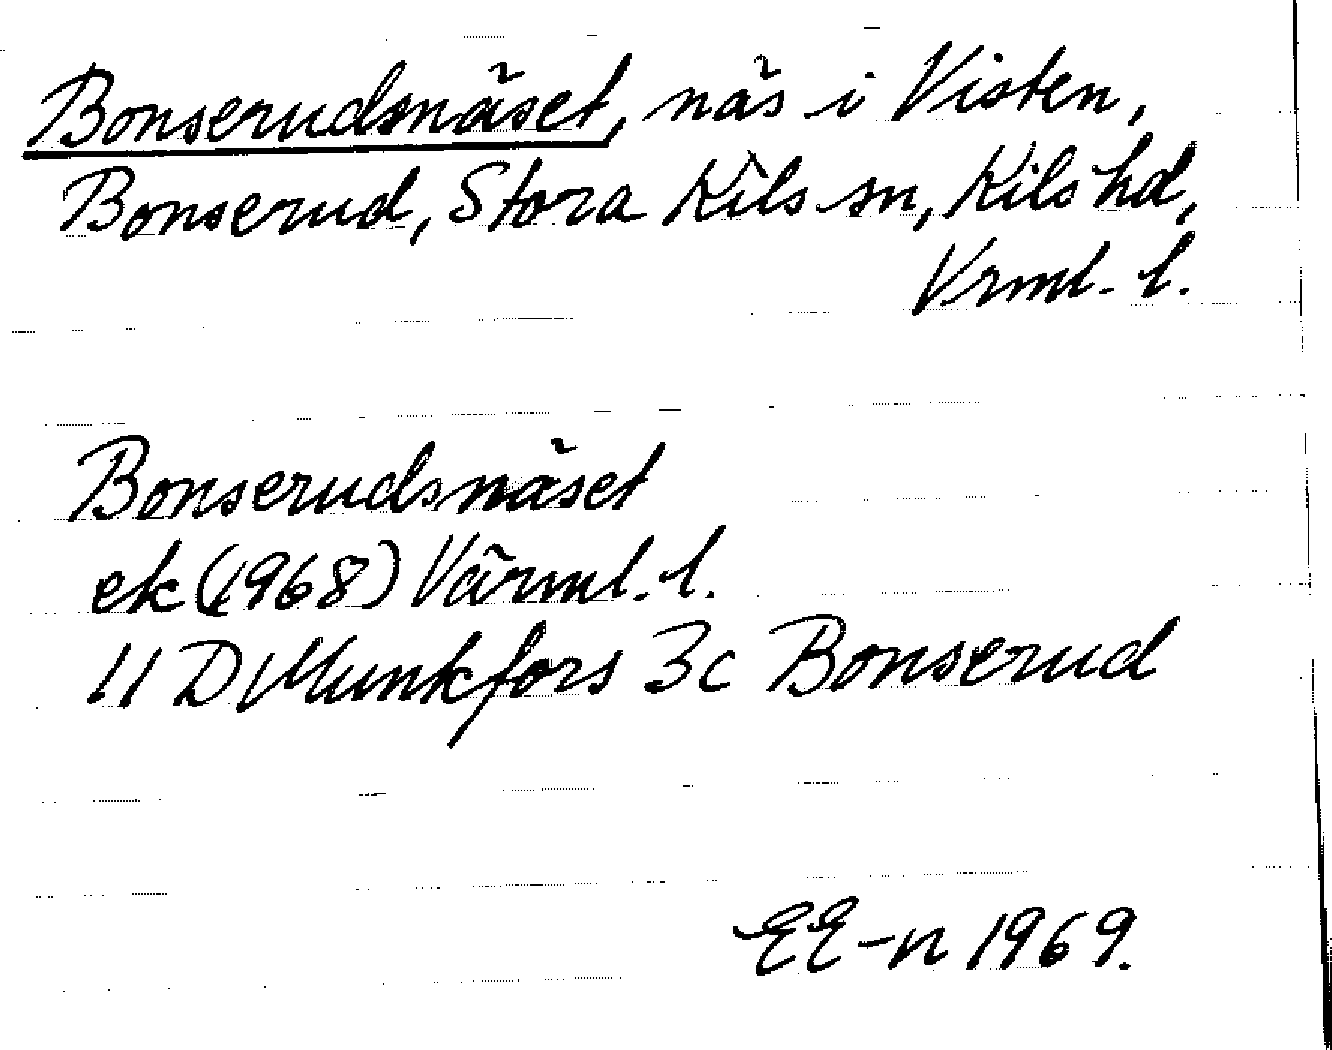 Bonserudsnäset, näs i Visten,
Bonserud, Stora Kils sn, Kils hd,
Vrml. l.
Bonserudsnäset
ek (1968) Värml. l.
11 D Munkfors 3c Bonserud
EE-n 1969.